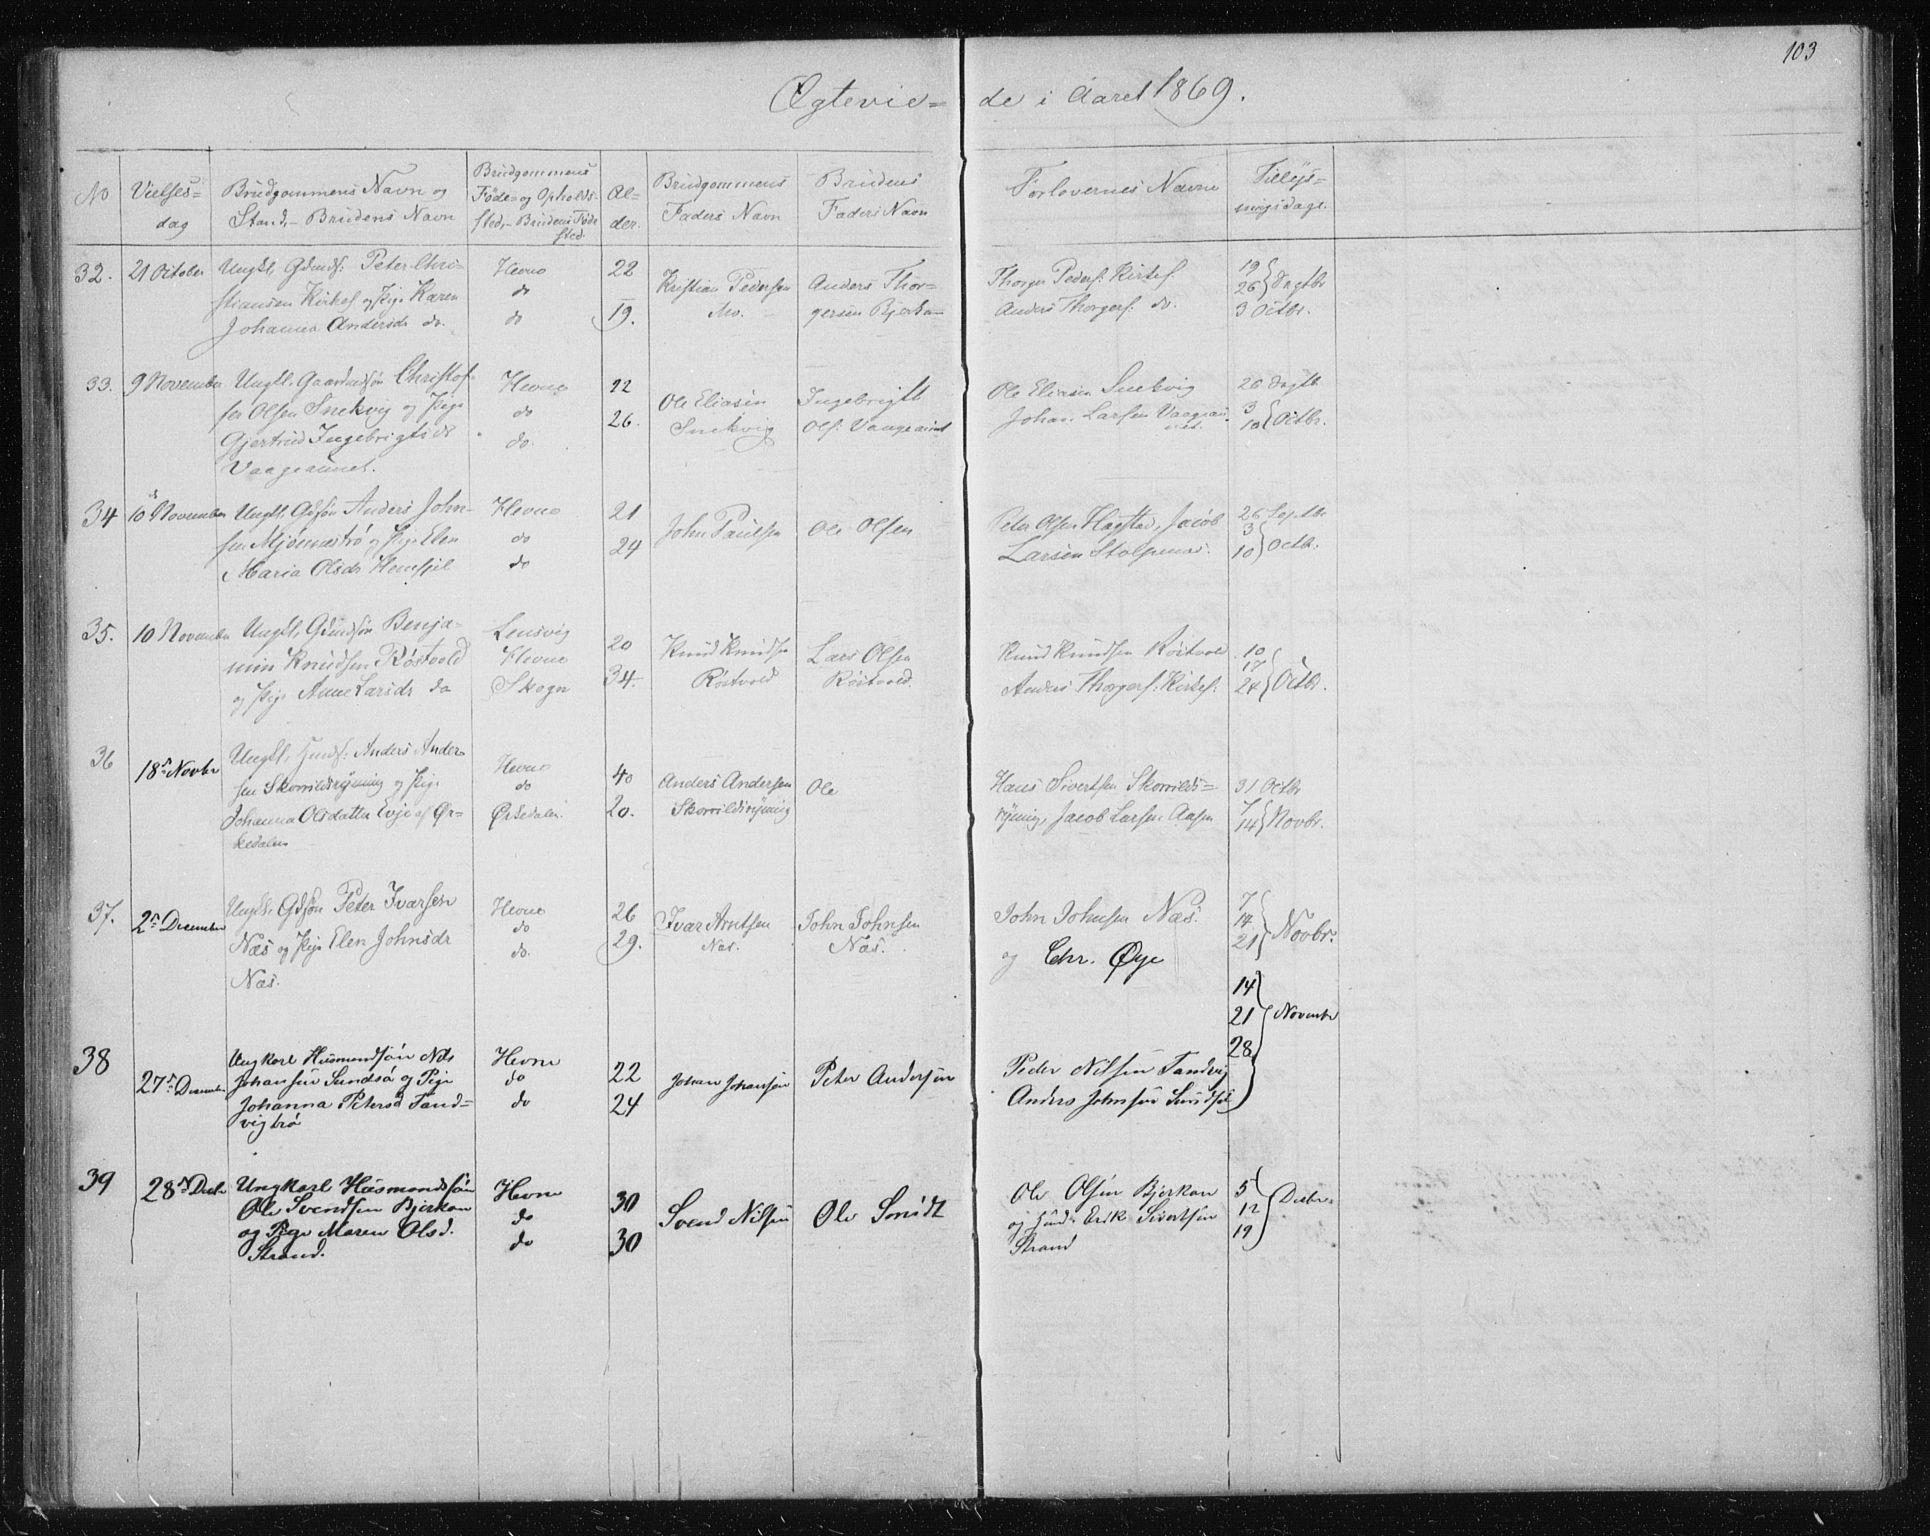 103
Ægtevie= de i Aaret 1869.
No
Vielses=
dag
Brudgommens Navn og
Stand, - Brudens Navn
Brudgommens
Føde= og Opholds-
sted, - Brudens Føde
sted.
Al-
der.
Brudgommens
Faders Navn
Brudens
Faders Navn
Forlovernes Navne
Tillys=
ningsdage.
32. 21 October
Ungkl. Gdmds: Peter Chri-
stiansen Kirkes og Pige Karen
Johanna Andersdr do.
Hevne
do
do
22
19.
Kristian Pedersen
Mo.
Anders Thor-
gersen Bjerka-
Thorger Peders: Kirkes:
Anders Thorgers: do.
19
26 } Septbr
3 Octbr.
33. 9 November
Ungkl. Gaardmdsøn Christof-
fer Olsen Snekvig og Pige
Gjertrud Ingebrigtsdr
Vaageaunet.
Hevne
do
do.
22
26.
Ole Eliasen
Snekvig
Ingebrigt
Ols: Vaageaunet
Ole Eliasen Snekvig
Johan Larsen Vaageau-
net.
26 Septbr
3
10 } Octbr.
34 10 November
Ungkl. Gdsøn Anders John-
sen Mjønnestrø og Pige Elen
Maria Olsdr Hemsjel
Hevne
do
do
21
24
John Paulsen
Ole Olsen
Peter Olsen Hagstad, Jacob
Larsen Stolpenas.
26 Septbr
3
10 } Octb.
35. 10 November
Ungkl. Gdmdsøn Benja-
min Knudsen Røstvold
og Pige Anne Larsdr do
Lensvig
Hevne
Skogn
20
34.
Knud Knudsen
Røstvold
Lars Olsen
Røstvold.
Knud Knudsen Røstvold
Anders Thorgers: Kirkes:
10
17
24 } Octbr.
36 18de Novbr
Ungkl. Hmds: Anders Ander-
sen Skorrildsrøning og Pige
Johanna Olsdatter Evje af Ør-
kedalen
Hevne
do
Ørkedalen.
40
20.
Anders Andersen
Skorrildsrøning
Ole
Hans Sivertsen Skorrilds=
røning, Jacob Larsen Aasen
31 Octbr
7
14 } Novbr.
37. 2den December
Ungkl. Gdsøn Peter Ivarsen
Næs og Pige Elen Johnsdr
Næs.
Hevne
do
do.
26
29.
Ivar Arntsen
Næs.
John Johnsen
Næs.
John Johnsen Næs.
og Chr. Øye
7
14
21 } Novbr.
38 27de December
Ungkarl Husmandsøn Nils
Johansen Sundsø og Pige
Johanna Petersd Tand=
vigtrø
Hevne
do
do
22
24
Johan Johansen
Peter Andersen
Peder Nilsen Tandvig
Anders Johnsen Sundset
14
21
28 } Novembr
39 28de Decbr
Ungkarl Husmandssøn
Ole Svendsen Bjerkan
og Pige Maren Olsd.
Strand.
Hevne
do
do
30
30
Svend Nilsen
Ole Smidt
Ole Olsen Bjerkan
og Hmd. Erik Sivertsen
Strand
5
12
19 } Decbr